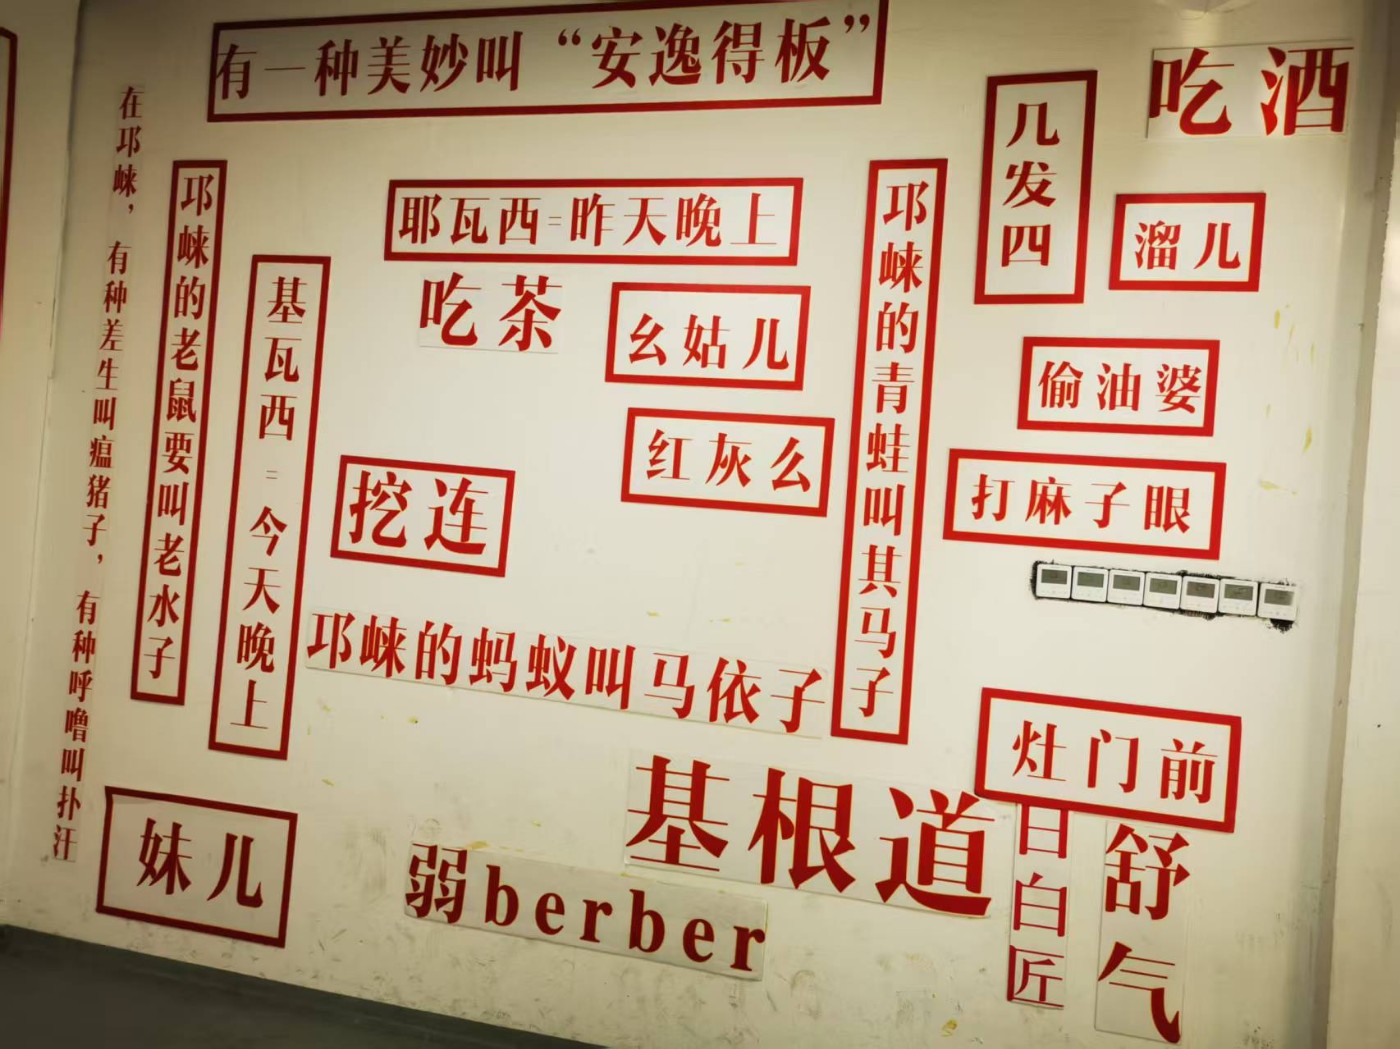 有一种美妙叫“安逸得板”
在邛崃，有种差生叫瘟猪子，有种呼噜叫扑汗
邛崃的老鼠要叫老水子
基瓦西=今天晚上
耶瓦西=昨天晚上
吃茶
幺姑儿
红灰么
挖连
邛崃的蚂蚁叫马依子
邛崃的青蛙叫其马子
几发四
吃酒
溜儿
偷油婆
打麻子眼
灶门前
基根道
日白匠
舒气
妹儿
弱berber